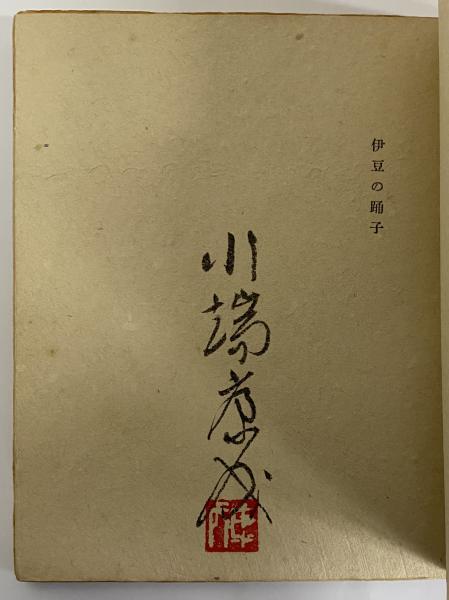 伊豆の踊子
川端康成